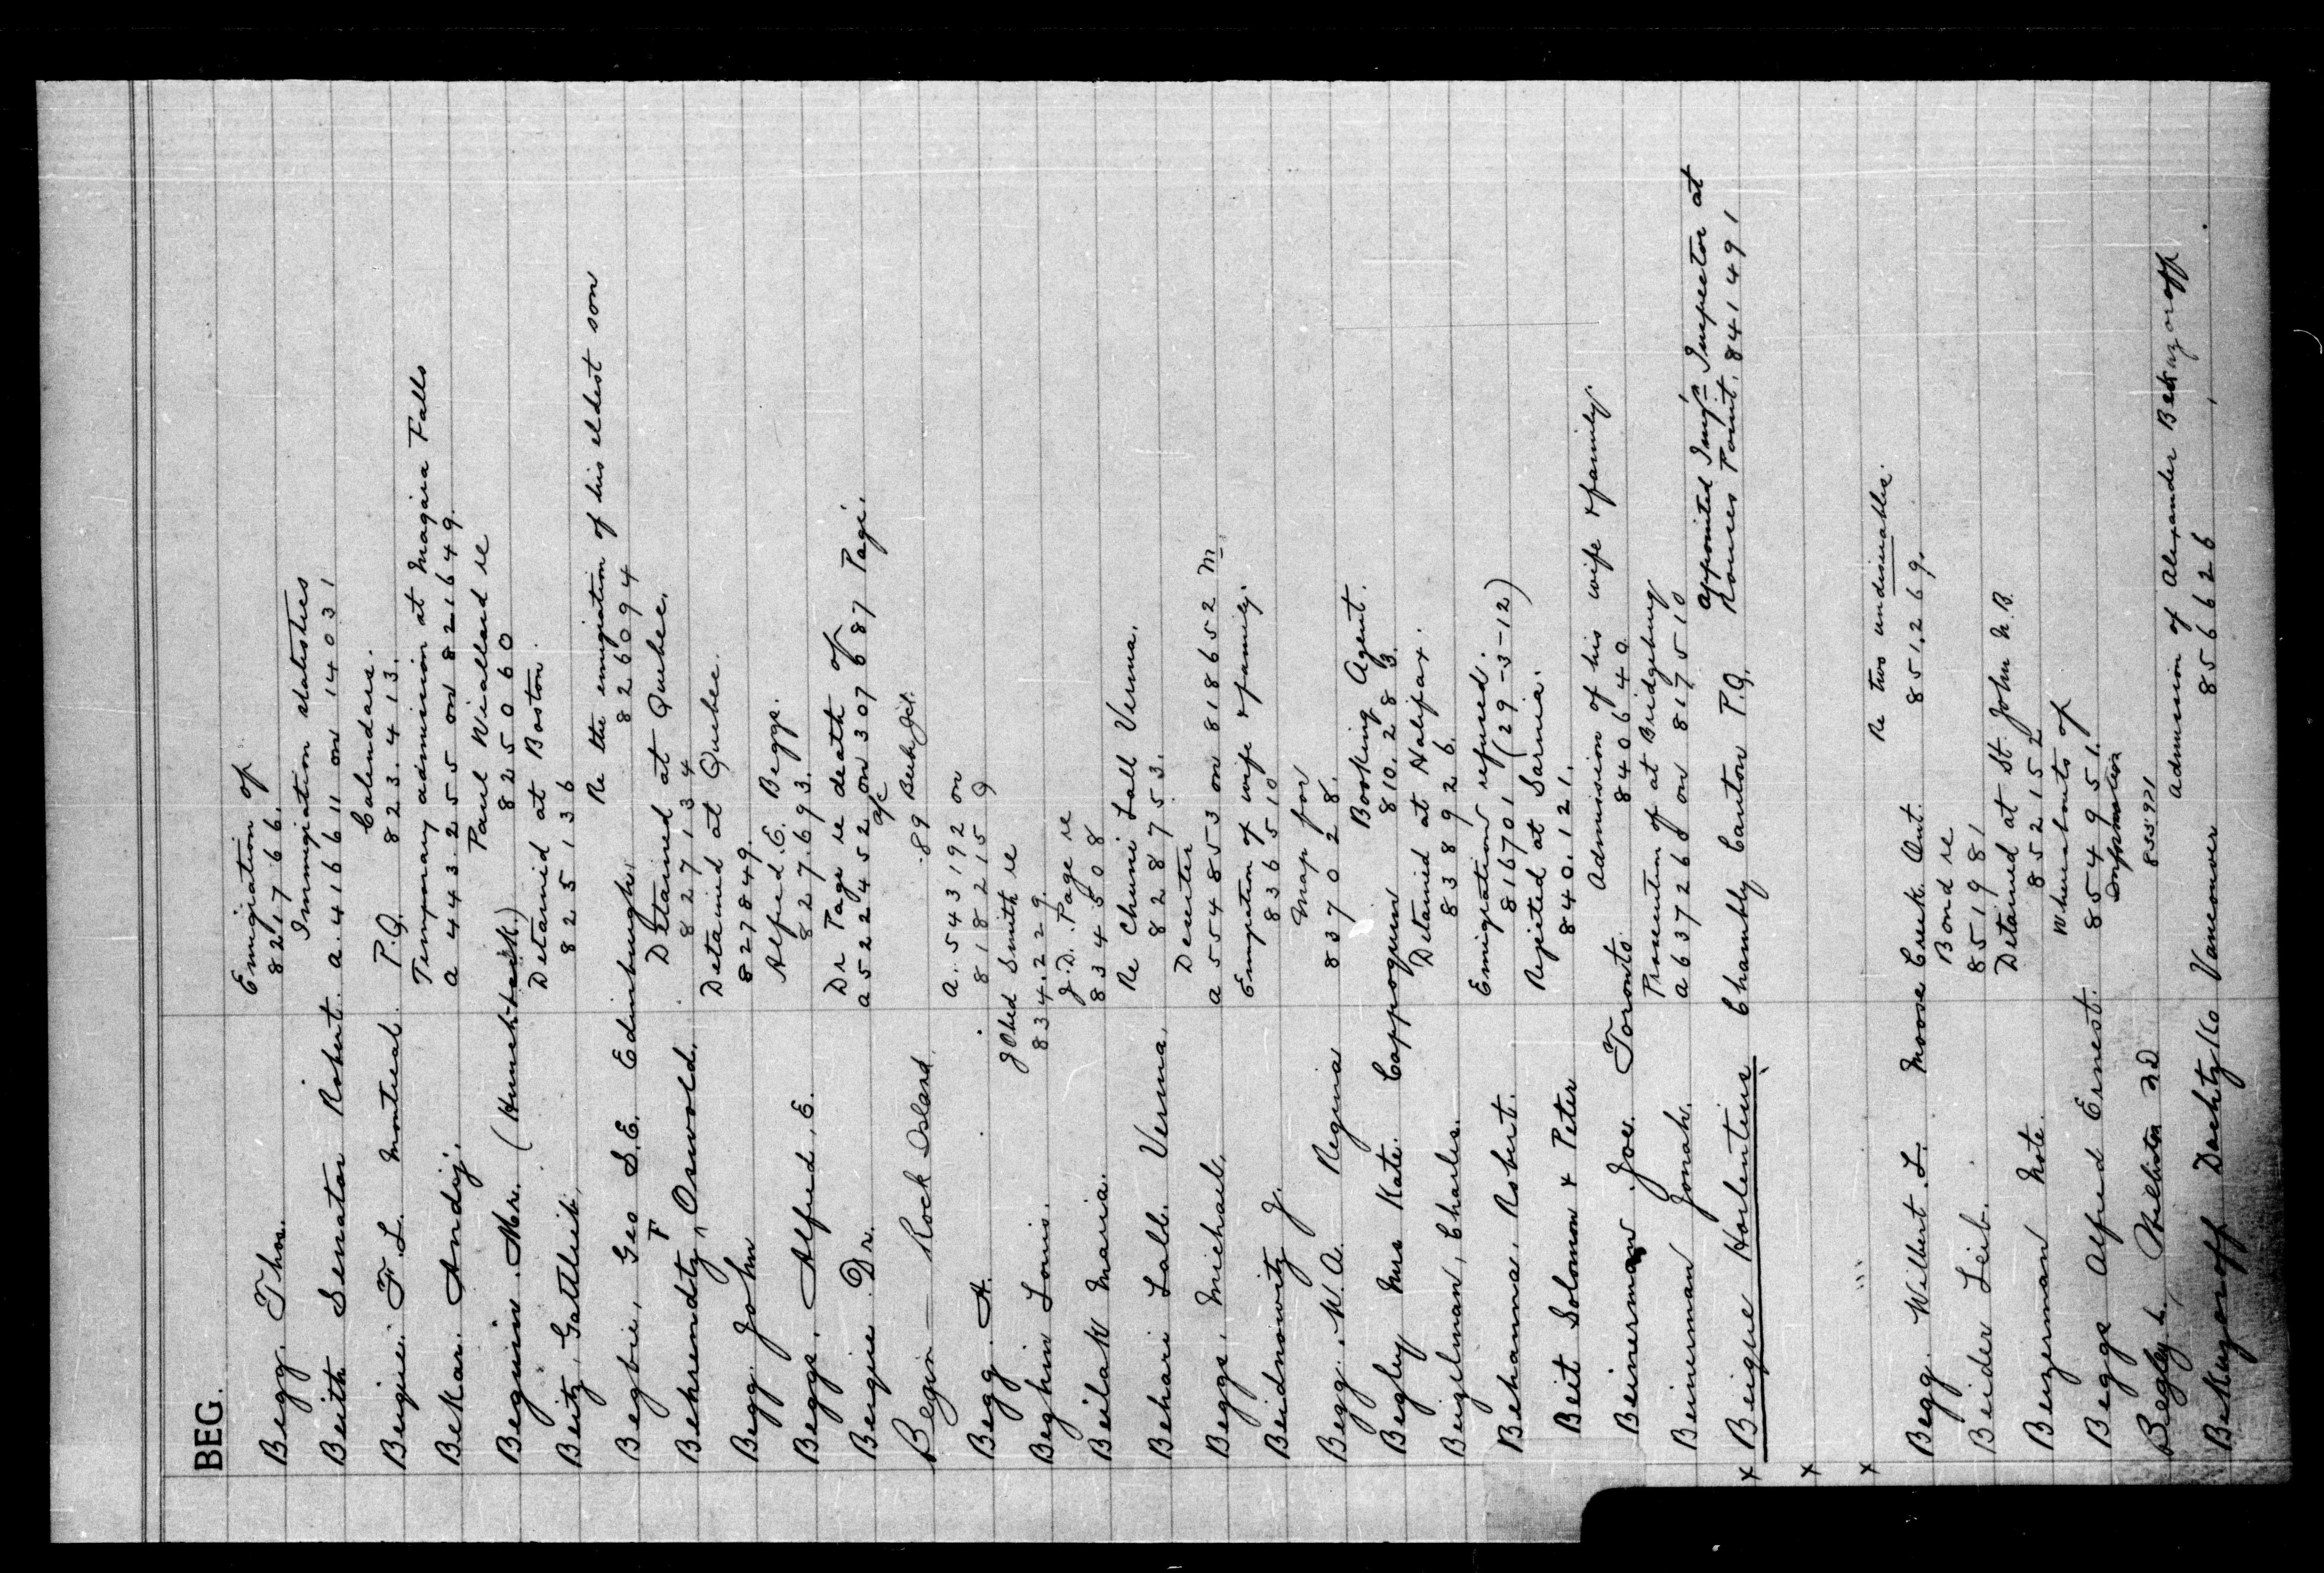 BEG.
Begg, Thos. Emigration of
821766.
Immigration statistics
Beith Senator Robert. a. 416611 on 14031
Calendars.
Beique. F. L. Montreal. P.Q. 823.413.
Temporary admission at Niagara Falls
Bekar. Andrij. a 443255 on 821649.
Paul Wiallard re
Beguin. Mr. 825060
Detained at Boston.
Beitz, Gottlieb, 825136
Re the emigration of his eldest son
Begbie, Geo S.E. Edinburgh. 826094
Detained at Quebec.
Behrendtz, F Oswold. 827134
Detained at Quebec.
Begg. John 827849.
Alfred. E. Beggs.
Beggs, Alfred, E. 827.693.
Dr Page re death of
Bengie Dr. a 522452 on 307687 Page.
Begin — Rock Island 89
a. 543192 on
Begg. A. 818215
J Obed Smith re
Beghin Louis. 834.229.
J.D. Page re
Beilak Maria. 834508
Re Chuni Lall Verma.
Behari Lall. Verma. 828753.
Deserter
Beggs, Michael. a 554853 on 818652 M
Emigration of wife & family.
Beidnowitz J. 836510
Map for
Begg. W.A. Regina 837028.
Booking Agent.
Begley Mrs Kate. Cappoquin 810.283.
Detained at Halifax.
Beigelman, Charles. 838926.
Emigration refused.
Behanna, Robert. 816701 (29-3-12)
Rejected at Sarnia.
Beit Solomon & Peter 840.121.
Admission of his wife & family.
Beinerman Joe. Toronto. 840640
Prosecution of at Bridgeburg
Beinerman Jonah. a 637268 on 817510
appointed Imm'gn Inspector at
x Beique Horlentius Chambly Canton P.Q. Rouses Point. 841491
x
x
Re two undesirables.
Begg. Wilbert L. Moose Creek Ont. 851,269.
Bond re
Beider Leib. 851981
Detained at St. John N.B.
Beizerman Note. 852152
Whereabouts of
Beggs Alfred Ernest. 854951.
Information
Begley L. Williston ND 855971
Admission of Alexander Bekuzoroff
Bekuzoroff Dachtzko Vancouver 856626